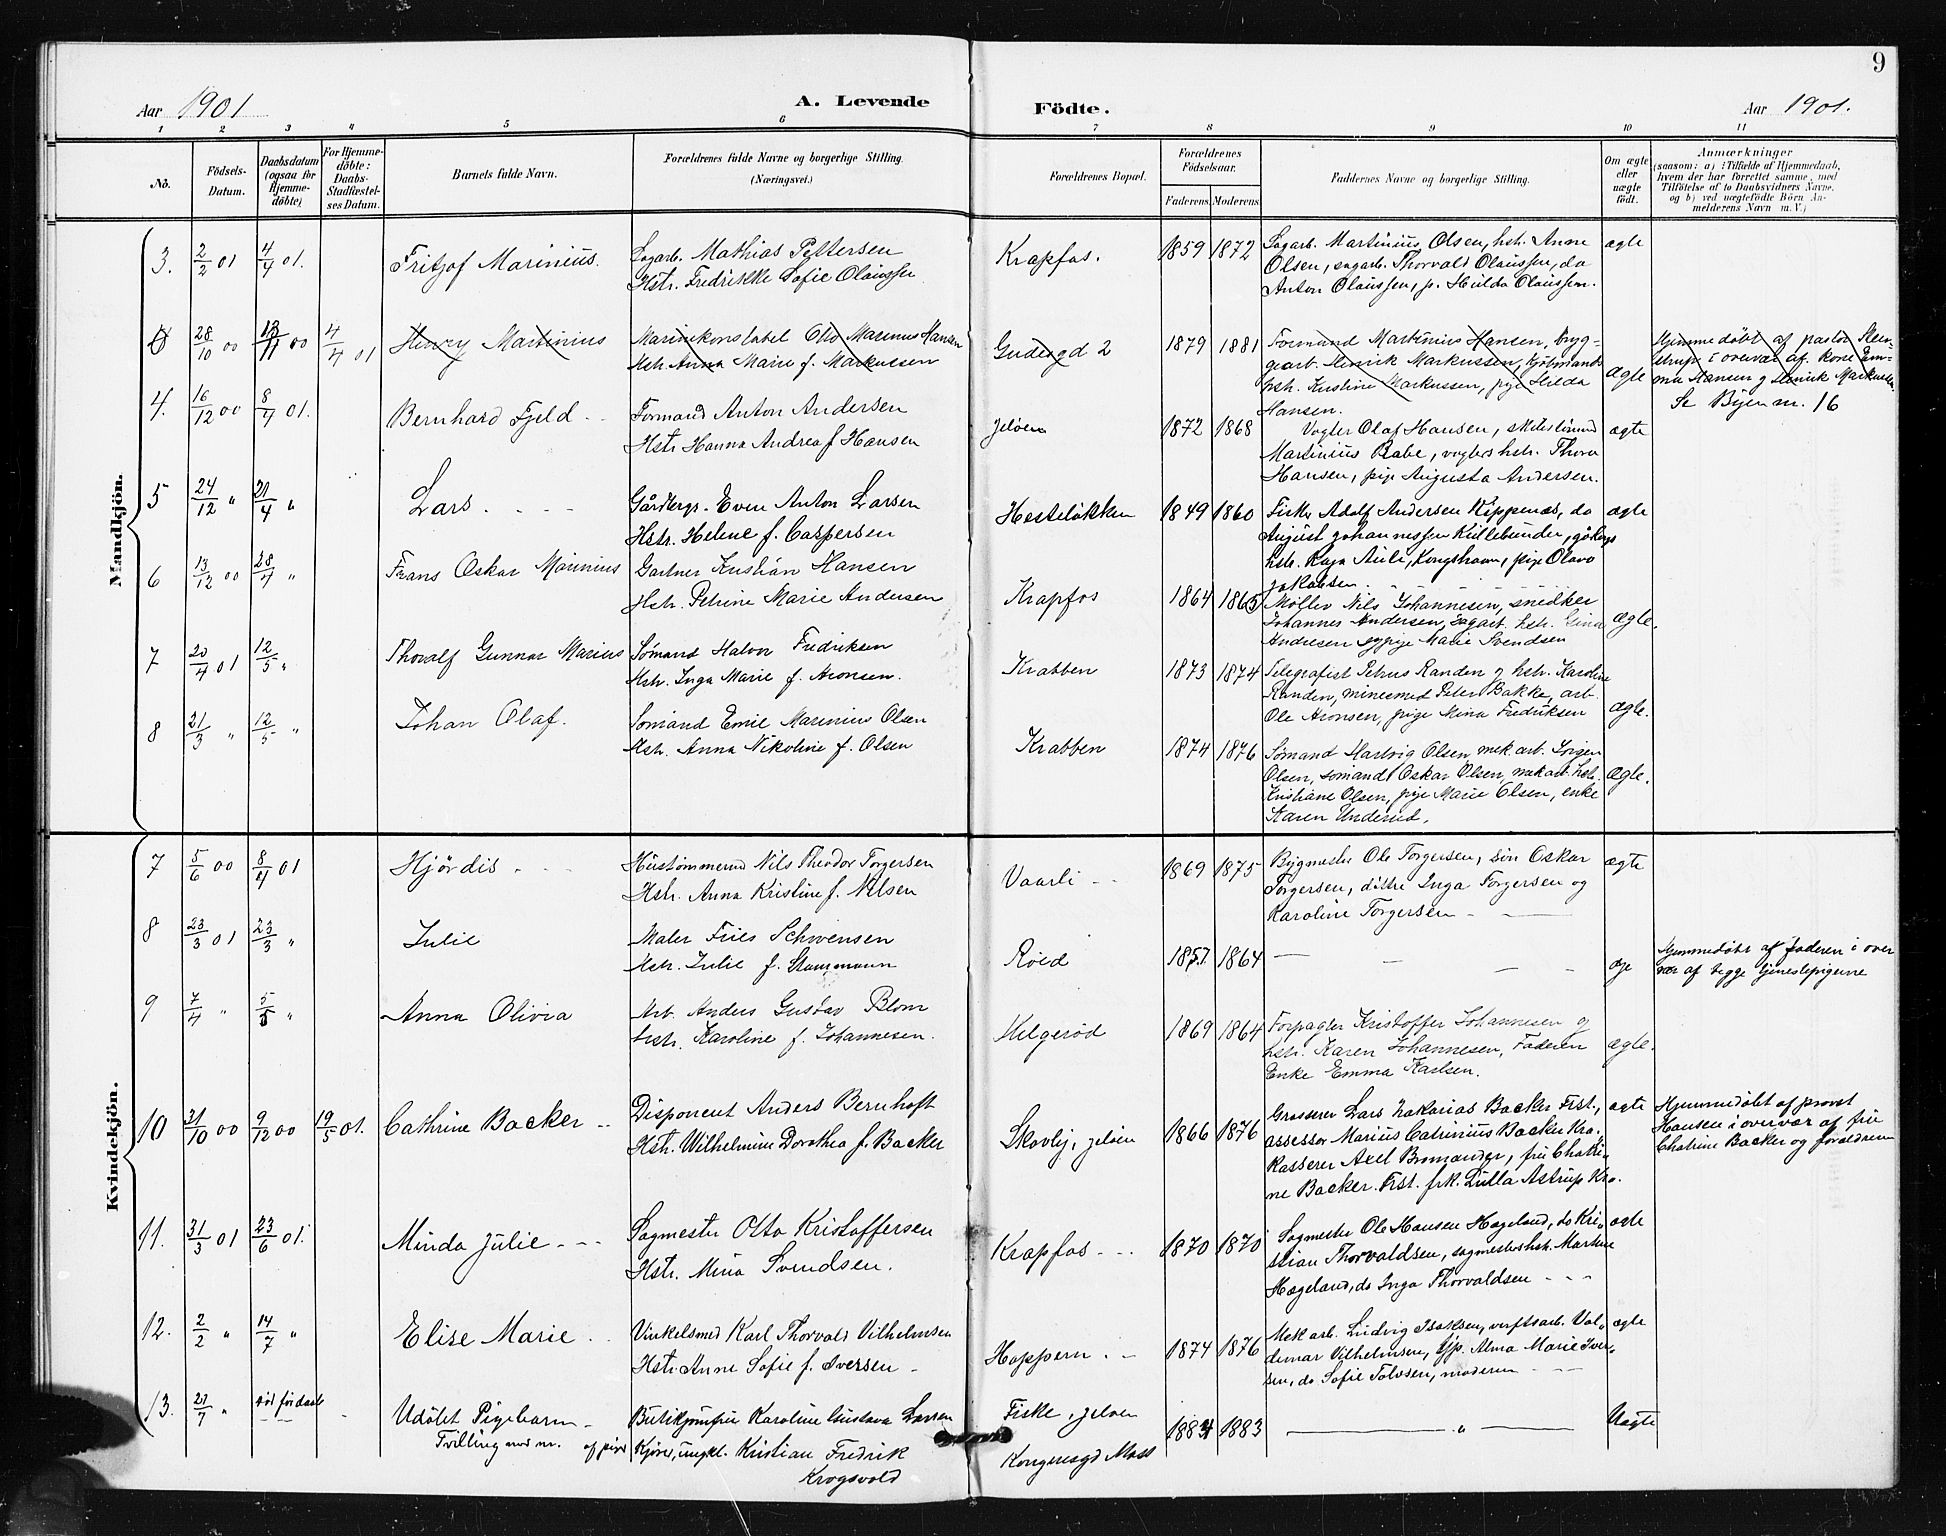 9
Aar 1901 A. Levende Födte. Aar 1901.
1 2 3 4 5 6 7 8 9 10 11
No. Födsels-Datum. Daabsdatum (ogsaa for Hjemme-döbte) For Hjemme-döbte: Daabs-Stadfæstel-ses Datum. Barnets fulde Navn. Forældrenes fulde Navne og borgerlige Stilling. (Næringsvei.) Forældrenes Bopæl. Forældrenes Födselsaar. Faderens Moderens Faddernes Navne og borgerlige Stilling. Om ægte eller uægte födt. Anmærkninger
(saasom: a) i Tilfælde af Hjemmedaab,
hvem der har forrettet samme, med
Tilföielse af to Daabsvidners Navne,
og b) ved uægtefödte Börn An-
melderens Navn m. V.)
Mandkjön.
3. 2/2 01 4/4 01. Fritjof Marinius. Sagarb. Mathias Pettersen
Hstr. Fredrikke Sofie Olaussen
Krapfos. 1859 1872 Sagarb. Martinius Olsen, hstr. Anne
Olsen, sagarb. Thorvald Olaussen, do
Anton Olaussen, p. Hulda Olaussen.
ægte
28/10 00 11 00 4/4 01 Henry Martinius Marinekonstabel Otto Marinus Hansen
Hstr. Anna Marie f. Markussen
Gudesgd 2 1879 1881 Formand Martinius Hansen, bryg-
gearb. Henrik Markussen, kjøbmands
hstr. Kristine Markussen, pige Hilda
Hansen.
ægte Hjemmedøbt af pastor Sten-
strup i overvær af kone Em-
ma Hansen og Henrik Markussen.
Se Byen nr. 16
4. 16/12 00 8/4 01. Bernhard Fjeld Formand Anton Andersen
Hstr Hanna Andrea f Hansen
Jeløen 1872 1868 Vogter Olaf Hansen,
Martinius Rabe, vogters hstr. Thora
Hansen, pige Augusta Andersen.
ægte
5 24/12 " 21/4 " Lars Gårdbrgs. Even Anton Larsen
Hstr. Helene f. Caspersen
Hesteløkken 1849 1860 Fisker Adolf Andersen Kippenæs, do
August Johannessen Kullebunden,
hstr. Kaja Aulie, Kongshavn, pige Olava
Jakobsen.
ægte
6 13/12 00 28/4 " Frans Oskar Marinius Gartner Kristian Hansen
Hstr. Petrine Marie Andersen
Krapfos 1864 1865 Møller Nils Johannesen, snedker
Johannes Andersen, sagarb. hstr. Gina
Andresen og pige Marie Svendsen
ægte.
7 20/4 01 12/5 " Thoralf Gunnar Marius Sømand Halvor Fredriksen
Hstr. Inga Marie f. Aronsen.
Krabben 1873 1874 Telegrafist Petrus Randen og hstr. Karoline
Randen, minesmed Peter Bakke, arb.
Ole Aronsen, pige Mina Fredriksen
ægte.
8 21/3 " 12/5 " Johan Olaf. Sømand Emil Marinius Olsen
Hstr. Anna Nikoline f. Olsen
Krabben 1874 1876 Sømand Hartvig Olsen, mek. arb. Jørgen
Olsen, sømand Oskar Olsen, mek arb. hstr.
Kristiane Olsen, pige Marie Olsen, enke
Karen Underud.
ægte.
Kvindekjön.
7 5/6 00 8/4 01 Hjørdis Hustømmermd Nils Theodor Torgersen
Hstr. Anna Kristine f. Nilsen
Vaarli 1869 1875 Bygmester Ole Torgersen, søn Oskar
Torgersen, døttre Inga Torgersen og
Karoline Torgersen
ægte
8 23/3 01 23/3 " Julie Maler Friis Schwensen
Hstr. Julie f. Stammann
Røed 1857 1864 — — — — æge Hjemmedøbt af faderen i over
vær af begge tjenestepigerne
9 7/4 " 5/5 " Anna Olivia Arb. Anders Gustav Blom
hstr. Karoline f. Johannesen.
Helgerød 1869 1864 Forpagter Kristoffer Johannesen og
hstr. Karen Johannesen, Faderen
Enke Emma Karlsen.
ægte.
10 31/10 00 9/12 00 19/5 01. Cathrine Backer Disponent Anders Bernhoft
Hstr. Wilhelmine Dorothea f. Backer
Skovly, Jeløen 1866 1876 Grosserer Lars Zakarias Backer Frst.,
assessor Marius Catrinius Backer Kra.
Kasserer Axel Bromander, fru Chatri-
ne Backer Frst. frk. Lulla Astrup Kra.
ægte Hjemmedøbt af provst
Hansen i overvær af fru
Chatrine Backer og forældrene
11. 31/3 01 23/6 01. Minda Julie Sagmester Otto Kristoffersen
Hstr. Mina Svendsen.
Krapfos 1870 1870 Sagmester Ole Hansen Hægeland, do Kri-
stian Thorvaldsen, sagmesters hstr. Martine
Hægeland, do Inga Thorvaldsen
ægte
12. 2/2 " 14/7 " Elise Marie Vinkelsmed Karl Thorvald Vilhelmsen
Hstr. Anne Sofie f. Iversen
Hoppern 1874 1876 Mek arb. Ludvig Isaksen, verftsarb. Val-
demar Vilhelmsen, Tjp. Alma Marie Iver-
sen, do Sofie Tolvsen, moderen
ægte
13. 27/7 " død før daab Udøbt Pigebarn
Tvilling med nr. af piger
Butikjomfru Karoline Gustava Larsen
Kjører, ungkl. Kristian Fredrik
Krogsvold
Fiske, Jeløen
Kongensgd Moss
1884 1883 — " — Uægte